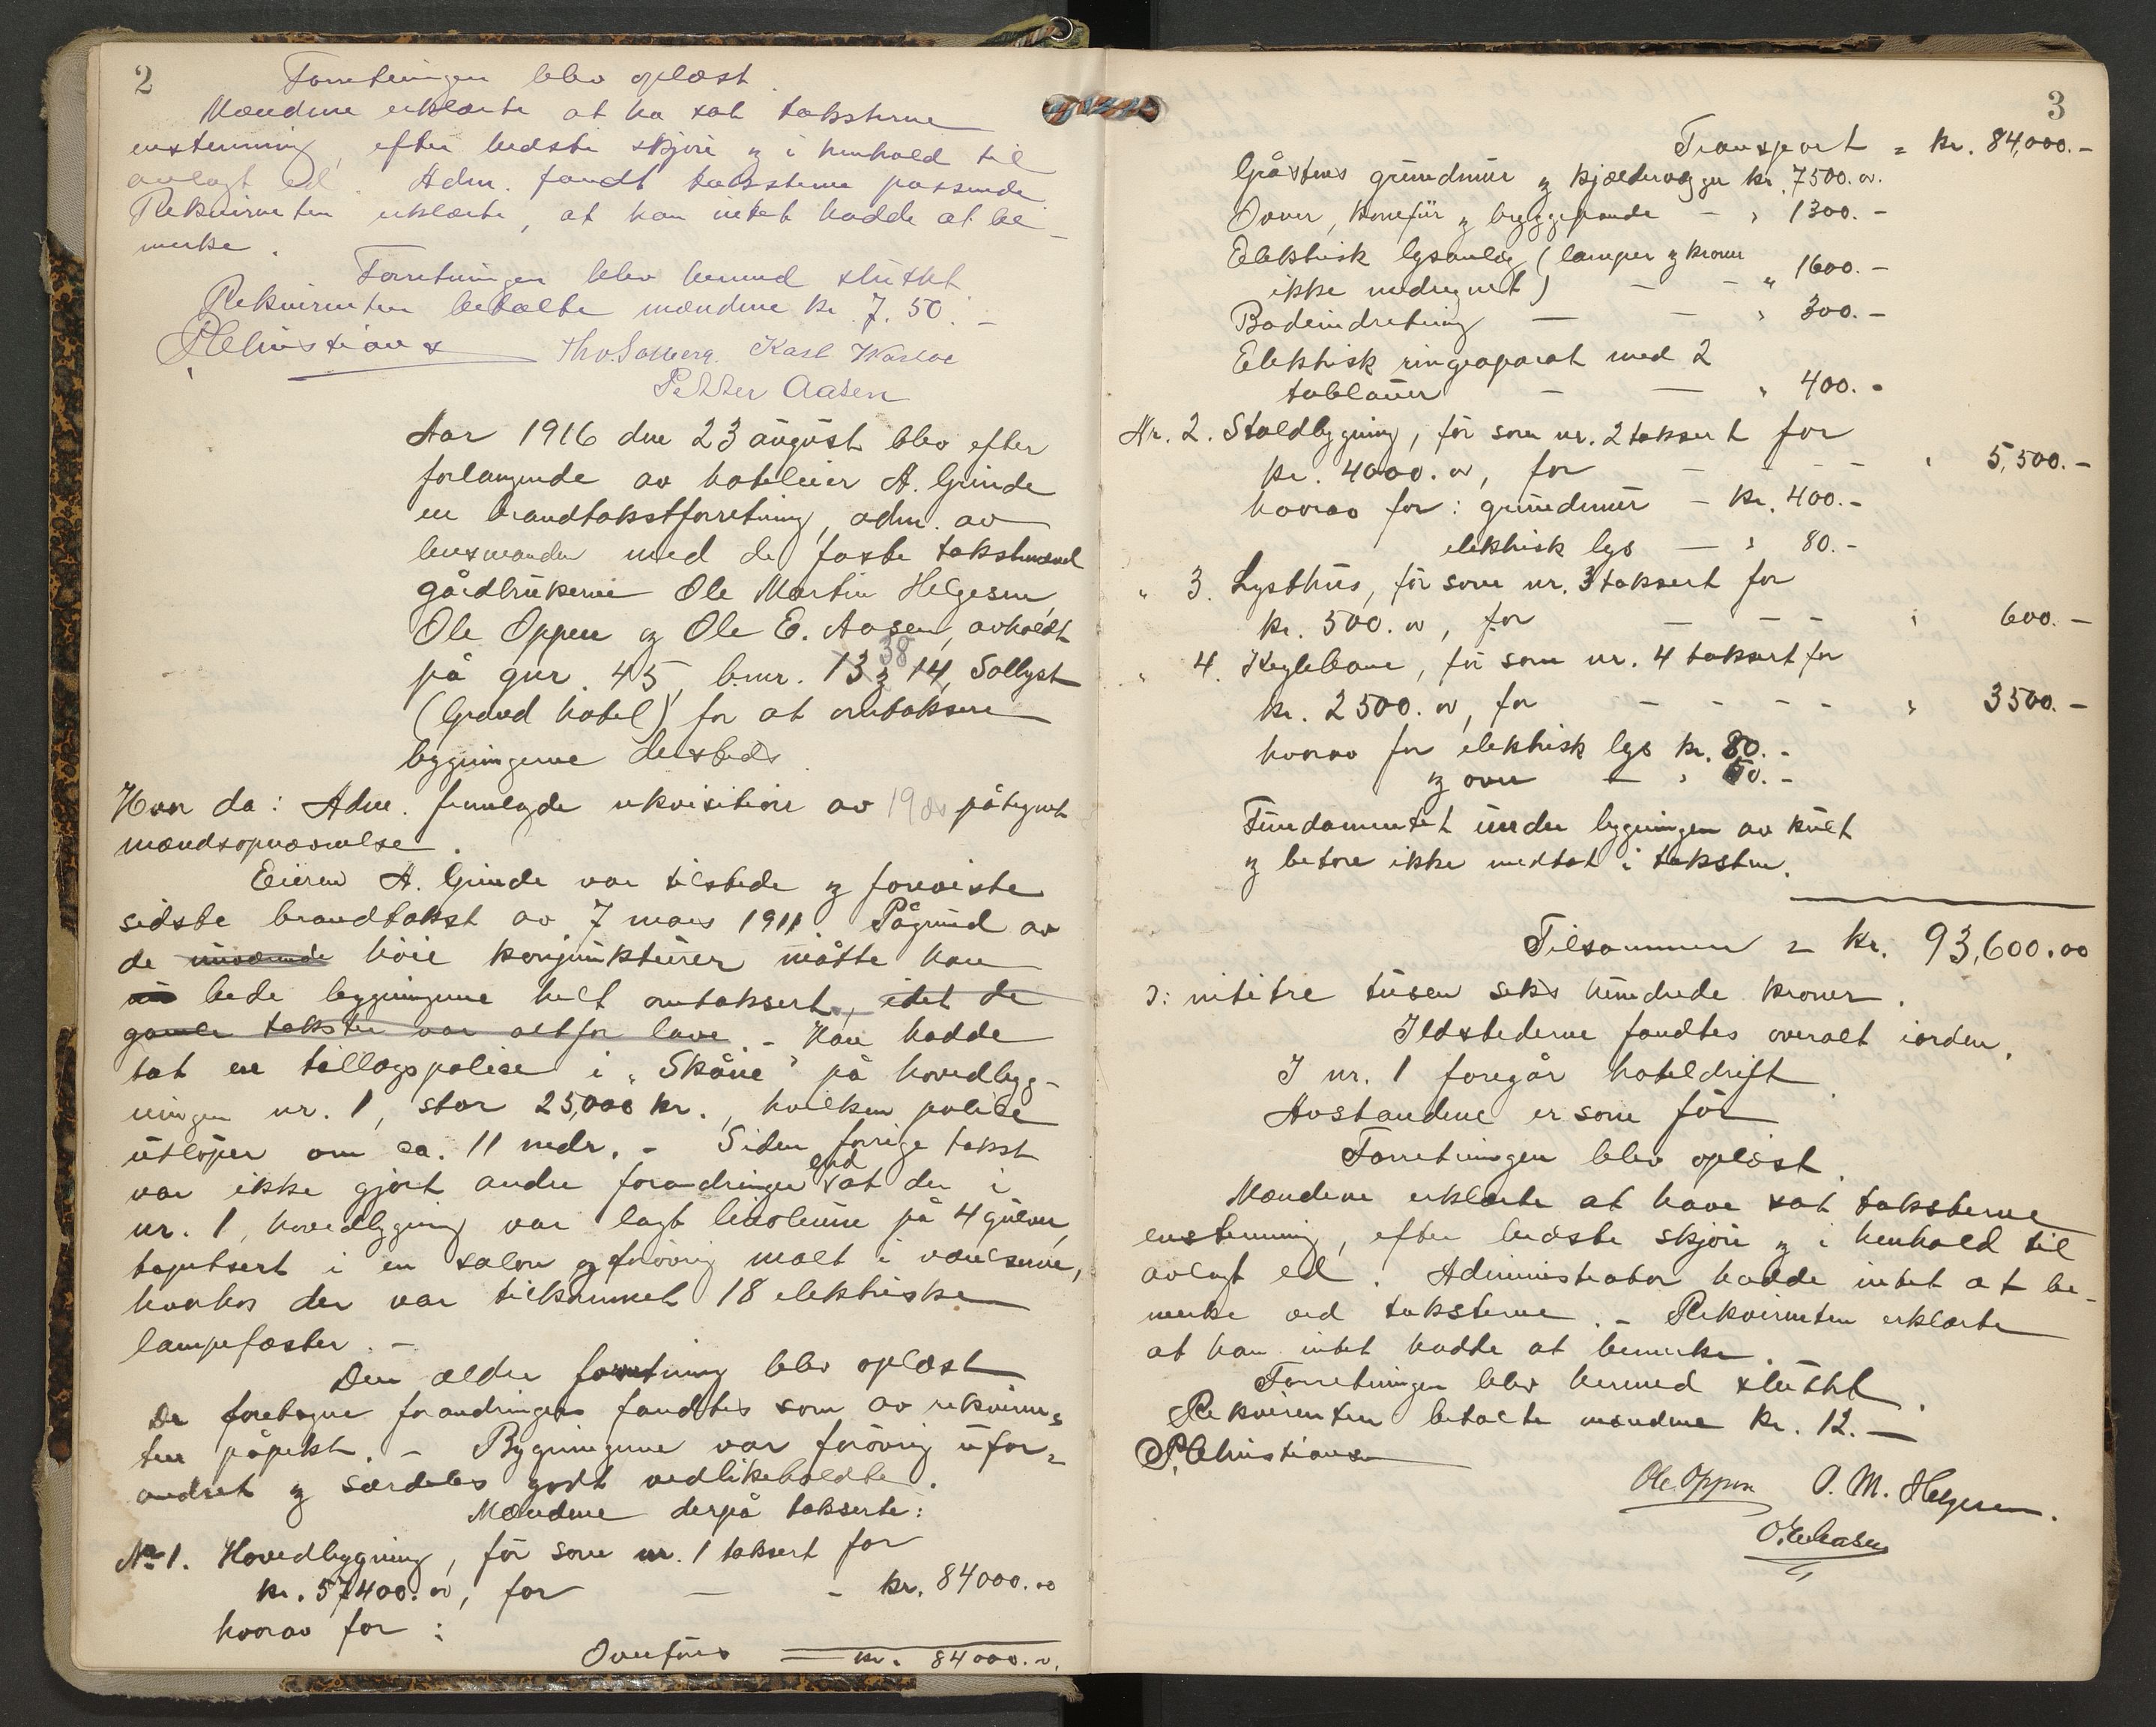 2
Forretningen blev oplæst.
Mændene erklærte at ha sat taksterne
enstemmig, efter bedste skjøn og i henhold til
avlagt ed. Adm. fandt taksterne passende
Rekvirenten erklærte, at han intet hadde at be-
merke.
Forretningen blev hermed sluttet.
Rekvirenten betalte mændene kr. 7.50.-
P. Christians Karl
Petter Aasen
Aar 1916 den 23 august blev efter
forlangende av hoteleier A. Grinde
en brandtakstforretning, adm. av
lensmanden med de faste takstmænd
gårdbrukerne Ole Martin Helgesen,
Ole Oppen og Ole E. Aasen, avholdt
38
på gnr. 45, b.nr. 13 og 14, Sollyst
(Grand hotel) for at omtaksere
bygningerne dersteds.
Hvor da: Adm. fremlagde rekvisition av 19 ds påtegnet
mændsopnævnelse.
Eieren A. Grinde var tilstede og foreviste
sidste brandtakst av 7 mars 1911. Pågrund av
de nuværende høie konjunkturer måtte han
nu bede bygningerne helt omtaksert, idet de
gamle takster var altfor lave. - Han hadde
tat en tillægspolise i "Skåne" på hovedbyg-
ningen nr. 1, stor 25,000 kr., hvilken police
utløper om ca. 11 mdr. - Siden forrige takst
var ikke gjort andre forandringer end at der i
nr. 1, hovedbygning var lagt linoleum på 4 gulver,
tapetsert i en salon og forøvrig malt i værelserne,
hvorhos der var tilkommet 18 elektriske
lampefæster. -
Den ældre forretning blev oplæst
De foretagne forandringer fandtes som av rekviren-
ten påpekt. - Bygningerne var forøvrig ufor-
andret og særdeles godt vedlikeholdte.
Mændene derpå takserte:
Nr 1. Hovedbygning, før som nr. 1 taksert for
kr. 57400.00, for - - kr. 84000.00
hvorav for:
Overføres kr. 84000.00
3
Transport = kr. 84,000.-
Gråstens grundmur og kjældervægge kr. 7500.00
Ovner, komfür og bryggepande - " 1300.-
Elektrisk lysanlæg (lamper og kroner
ikke medregnet) - - " 1600.-
Badeindretning - - " 300.-
Elektrisk ringeaparat med 2
tablauer - - " 400.-
Nr. 2. Staldbygning, før som nr. 2 taksert for
kr. 4000.00, for - - - " 5,500.-
hvorav for: grundmur - kr. 400.-
elektrisk lys - " 80.-
" 3. Lysthus, før som nr. 3 taksert for
kr. 500.00, for - - - " 600.-
" 4. Keglebane, før som nr. 4 taksert for
kr. 2500.00, for - - - - " 3500.-
hvorav for elektrisk lys kr. 80.-
og ovn - " 50.-
Fundamentet under bygningen av kult
og betong ikke medtat i taksten.
Tilsammen = kr. 93,600.00
ɔ: nititre tusen seks hundrede kroner.
Ildstederne fandtes overalt iorden.
I nr. 1 foregår hoteldrift.
Avstandene er som før
Forretningen blev oplæst.
Mændene erklærte at have sat taksterne
enstemmig, efter bedste skjøn og i henhold til
avlagt ed. Administrator hadde intet at be-
merke ved taksterne. - Rekvirenten erklærte
at han intet hadde at bemerke.
Forretningen blev hermed sluttet.
Rekvirenten betalte mændene kr. 12.-
P. Christiansen
Ole Oppen O. M. Helgesen.
O. E. Aasen